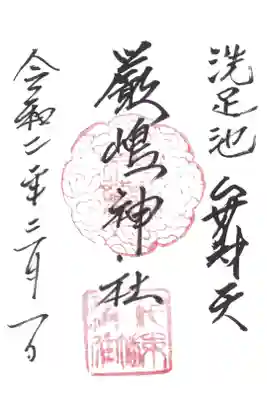 洗足池 弁財天
厳嶋神社
令和二年三月一日